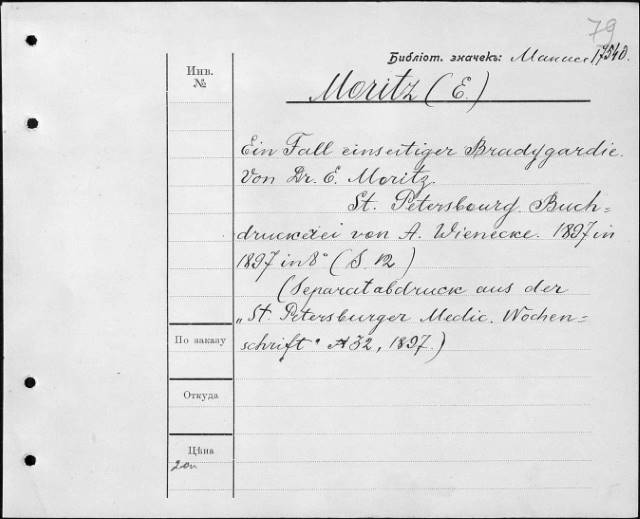 79
Библіот. значекъ: 17540.
Инв.
№
Moritz (E.)
Ein Fall einseitiger Bradygardie.
Von Dr. E. Moritz.
St. Petersbourg. Buch=
druckerei von A. Wienecke. 1897 in
1897 in 8° (S. 12)
(Separatabdruck aus der
„St. Petersburger Medic. Wochen=
schrift“ № 32, 1897.)
По заказу
Откуда
Цѣна